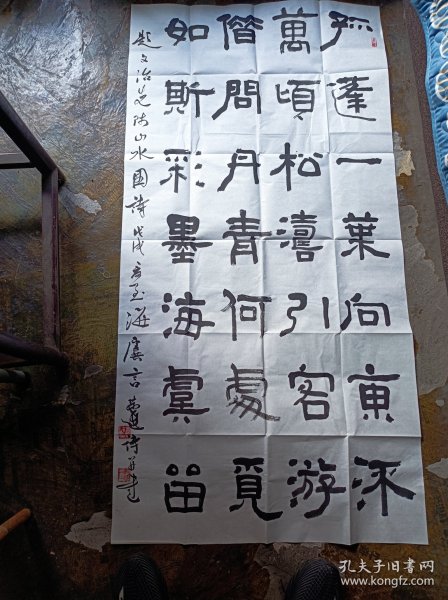 孤蓬一葉向東流
萬頃松濤引客游
借問丹青何處覓
如斯彩墨海虞留
題文治先師山水圖詩戊戌至海虞言恭達詩並書
孔夫子旧书网
www.kongfz.com